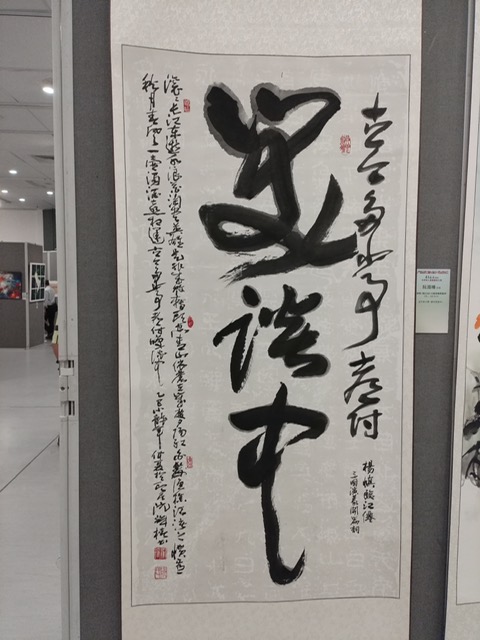 古今多少事都付
笑談中
楊慎臨江僊
三國演義開篇詞
滾〻長江東逝水浪花淘盡英雄是非成敗轉頭空青山依舊在幾度夕陽紅白髮漁樵江渚上慣看
秋月春風一壺濁酒喜相逢古今多少事都付笑談中